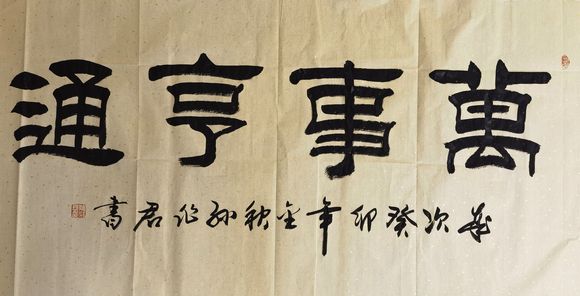 萬事亨通
歲次癸卯年金秋孫君書